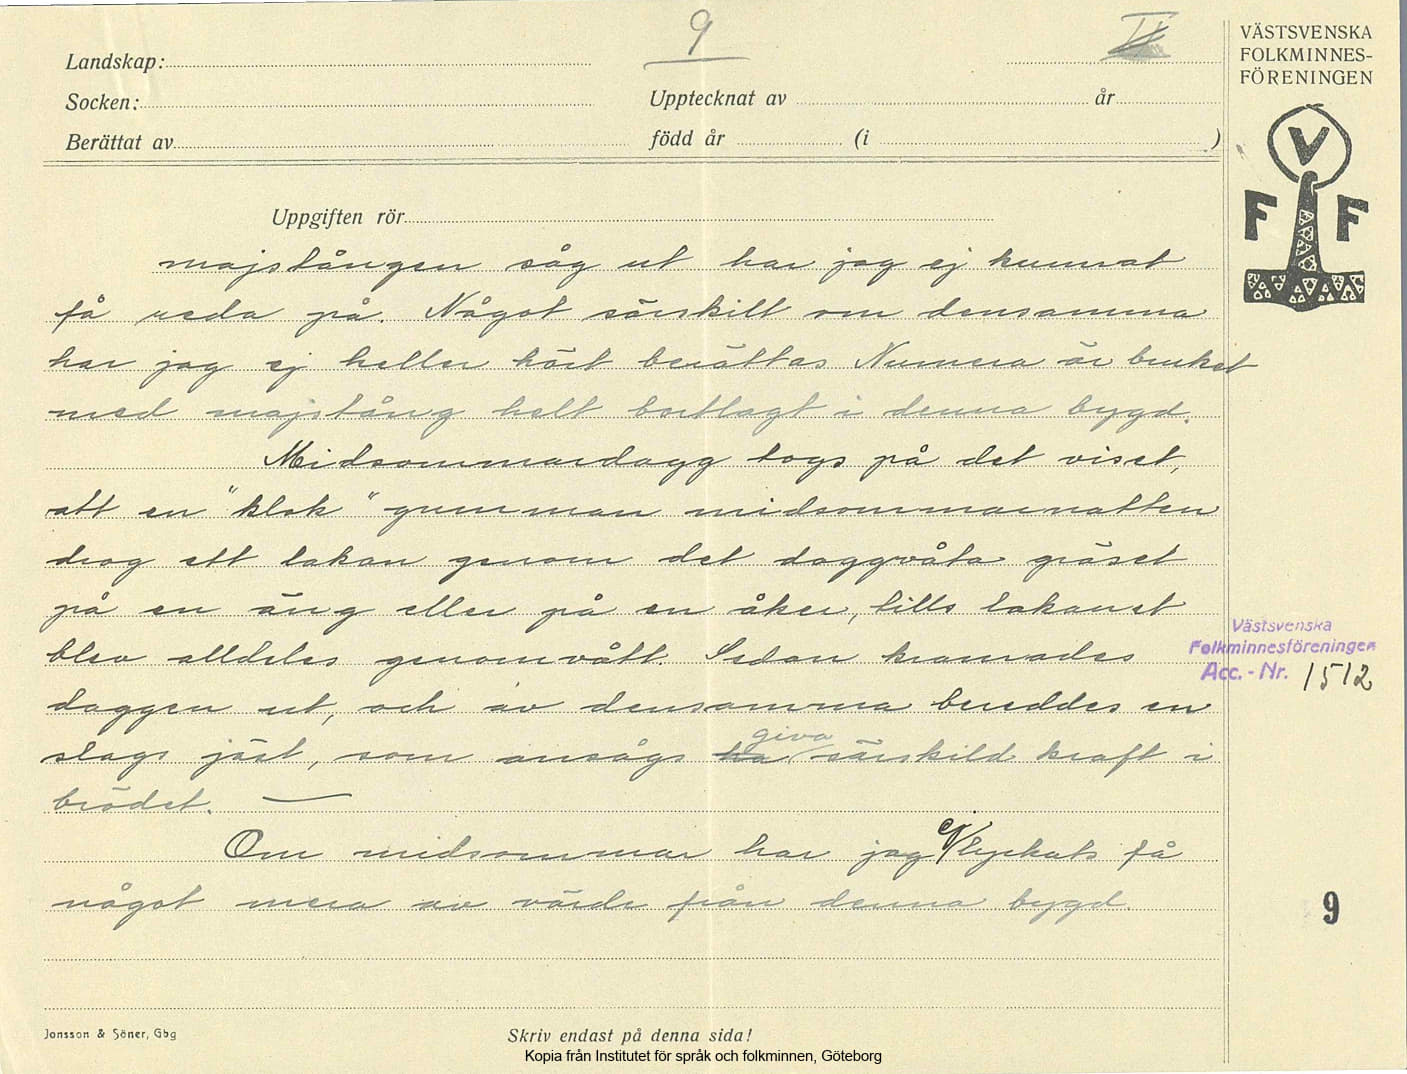 9
II
VÄSTSVENSKA
FOLKMINNES-
FÖRENINGEN
Landskap:
Socken:
Upptecknat av
år
Berättat av
född år
(i
)
V
F F
Uppgiften rör
majstången såg ut har jag ej kunnat
få reda på. Något särskilt om densamma
har jag ej heller hört berättas Numera är bruket
med majstång helt bortlagt i denna bygd.
Midsommardagg togs på det viset,
att en "klok" gumman midsommarnatten
drog ett lakan genom det daggvåta gräset
på en äng eller på en åker, tills lakanet
blev alldeles genomvått. Sedan kramades
daggen ut, och av densamma bereddes en
giva
slags jäst, som ansågs ha särskild kraft i
brödet. —
ej
Om midsommar har jag lyckats få
något mera av värde från denna bygd.
Västsvenska
Folkminnesföreningen
Acc. - Nr. 1512
9
Jonsson & Söner, Gbg
Skriv endast på denna sida!
Kopia från Institutet för språk och folkminnen, Göteborg